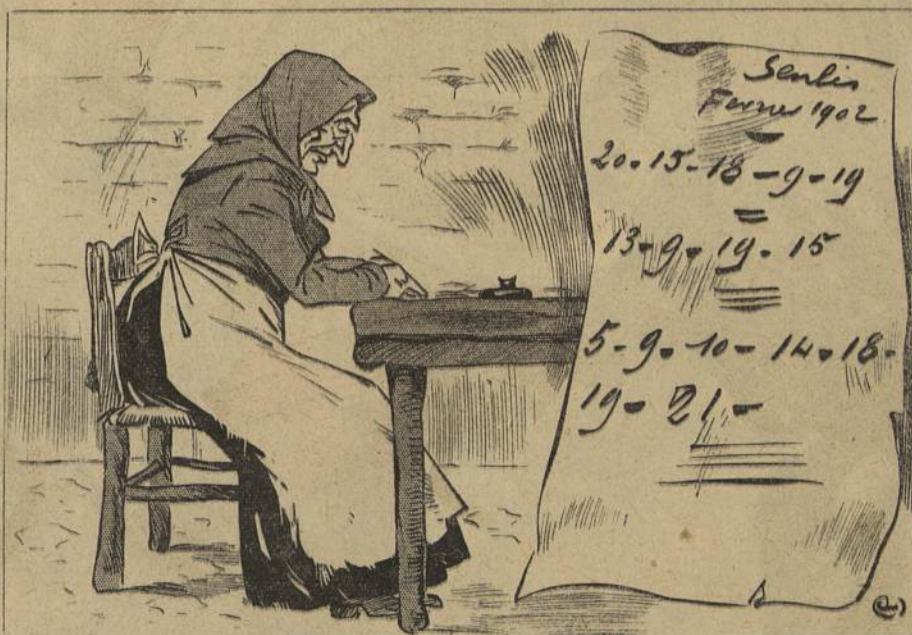 Senlis
Fevrier 1902
20-15-18-9-19
13-9-19-15
5-9-10-14-18-
19-21-